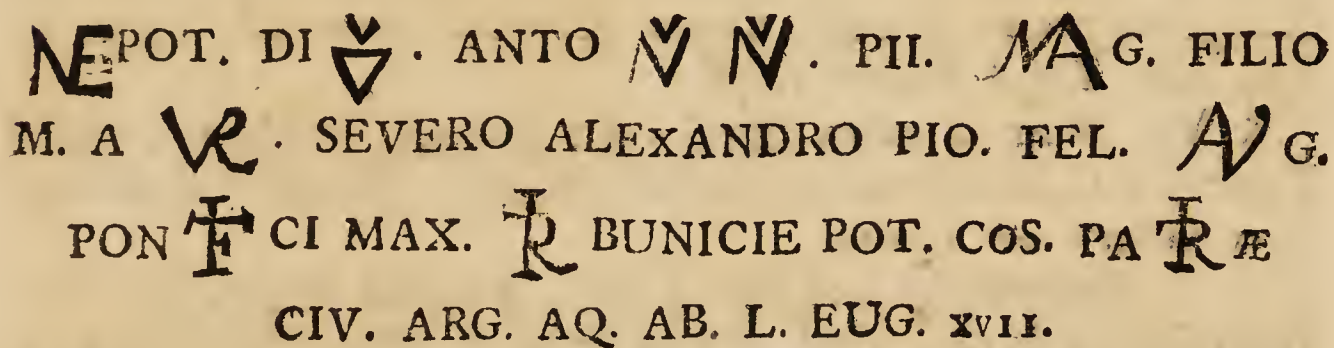 NEPOT. DI . ANTO . PII. MAG. FILIO
M. A VR. SEVERO ALEXANDRO PIO. FEL. AVG.
PON TIF CI MAX. TRI BUNICIE POT. COS. PA TRI Æ
CIV. ARG. AQ. AB. L. EUG. XVII.